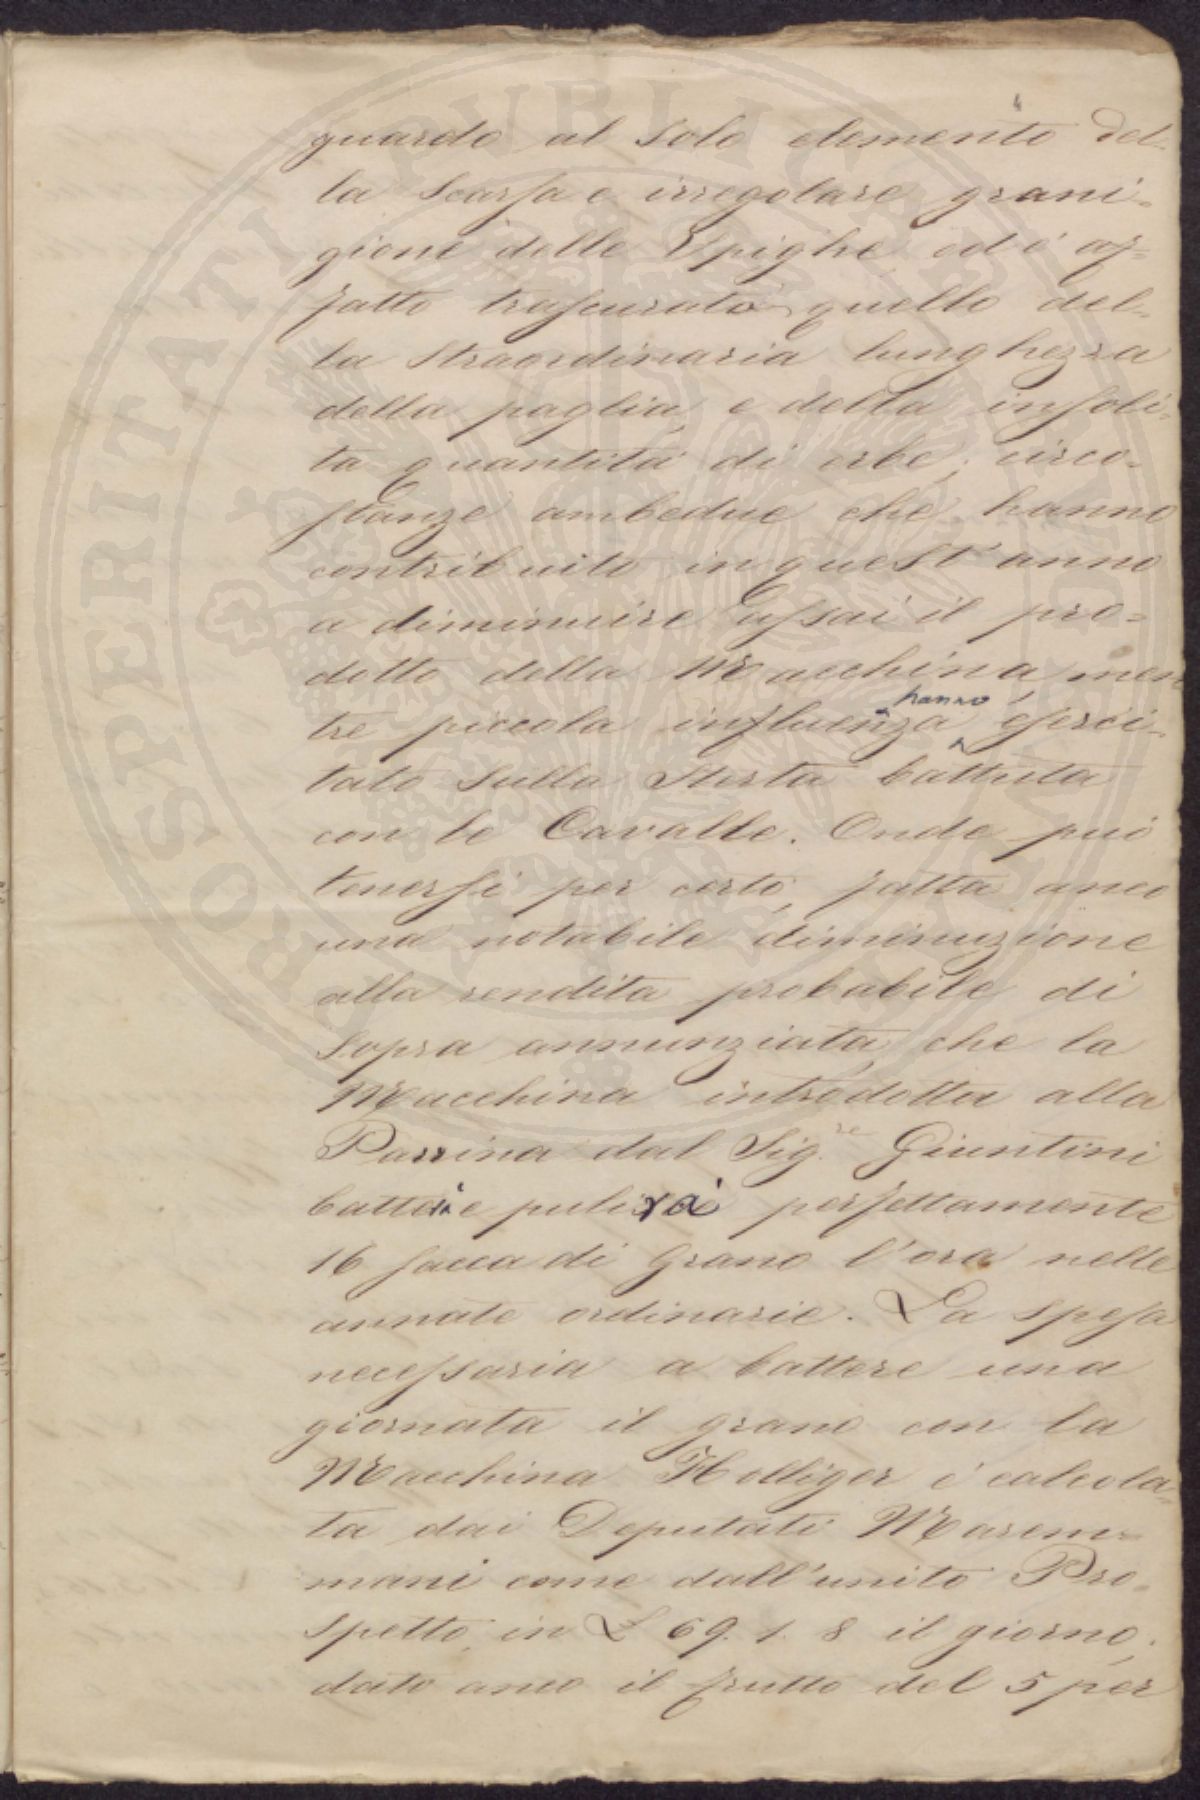 4
guardo al solo elemento del-
la Scarsa e irregolare grani-
gione delle Spighe, ed è af-
fatto trascurato quello del-
la straordinaria lunghezza
della paglia, e della insoli-
ta quantità di erbe; circo-
stanze ambedue che hanno
contribuito in quest'anno
a diminuire assai il pro-
dotto della Macchina, men
tre piccola influenza hanno eserci-
tato sulla Sterta battuta
con le Cavalle. Onde può
tenersi per certo, fatta anco
una notabile diminuzione
alla rendita probabile di
sopra annunziata, che la
Macchina introdotta alla
Parrina dal Sig.re Giuntini
batterà e pulirà perfettamente
16 sacca di Grano l'ora nelle
annate ordinarie. La spesa
necessaria a battere una
giornata il grano con la
Macchina Holliger è calcola-
ta dai Deputati Marem-
mani come dall'unito Pro-
spetto, in £ 69. 1. 8 il giorno,
dato anco il frutto del 5 per
PROSPERITATI PUBLICAE